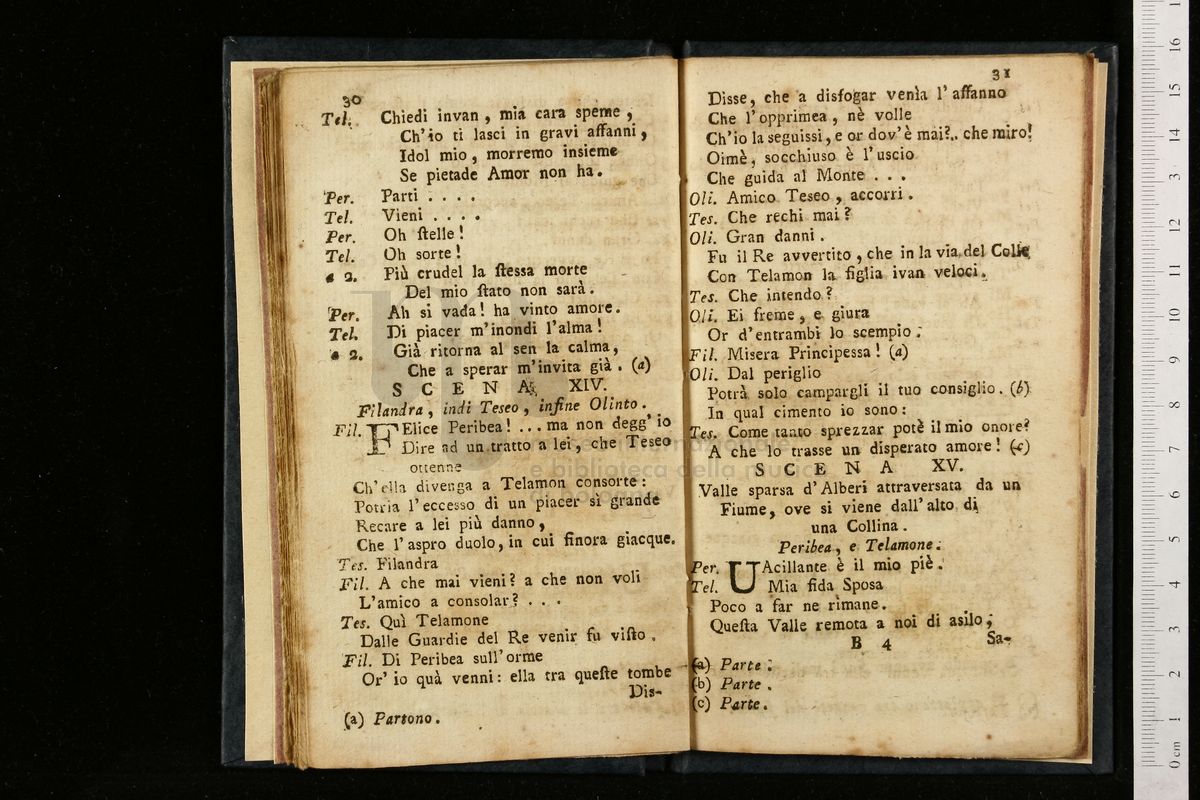 30
Tel. Chiedi invan, mia cara speme,
Ch'io ti lasci in gravi affanni,
Idol mio, morremo insieme
Se pietade Amor non ha.
Per. Parti . . . .
Tel. Vieni . . . .
Per. Oh stelle!
Tel. Oh sorte!
a 2. Più crudel la stessa morte
Del mio stato non sarà.
Per. Ah si vada! ha vinto amore.
Tel. Di piacer m'inondi l'alma!
a 2. Già ritorna al sen la calma,
Che a sperar m'invita già. (a)
SCENA XIV.
Filandra, indi Teseo, infine Olinto.
Fil. FElice Peribea! ... ma non degg'io
Dire ad un tratto a lei, che Teseo
ottenne
Ch'ella divenga a Telamon consorte:
Potria l'eccesso di un piacer sì grande
Recare a lei più danno,
Che l'aspro duolo, in cui finora giacque.
Tes. Filandra
Fil. A che mai vieni? a che non voli
L'amico a consolar? . . .
Tes. Quì Telamone
Dalle Guardie del Re venir fu visto.
Fil. Di Peribea sull'orme
Or' io quà venni: ella tra queste tombe
Dis-
(a) Partono.
31
Disse, che a disfogar venìa l'affanno
Che l'opprimea, nè volle
Ch'io la seguissi, e or dov'è mai?.. che miro!
Oimè, socchiuso è l'uscio
Che guida al Monte . . .
Oli. Amico Teseo, accorri.
Tes. Che rechi mai?
Oli. Gran danni.
Fu il Re avvertito, che in la via del Colle
Con Telamon la figlia ivan veloci.
Tes. Che intendo?
Oli. Ei freme, e giura
Or d'entrambi lo scempio.
Fil. Misera Principessa! (a)
Oli. Dal periglio
Potrà solo campargli il tuo consiglio. (b)
In qual cimento io sono:
Tes. Come tanto sprezzar potè il mio onore?
A che lo trasse un disperato amore! (c)
SCENA XV.
Valle sparsa d'Alberi attraversata da un
Fiume, ove si viene dall'alto di
una Collina.
Peribea, e Telamone.
Per. UAcillante è il mio piè.
Tel. Mia fida Sposa
Poco a far ne rimane.
Questa Valle remota a noi di asilo;
B 4 Sa-
(a) Parte.
(b) Parte.
(c) Parte.